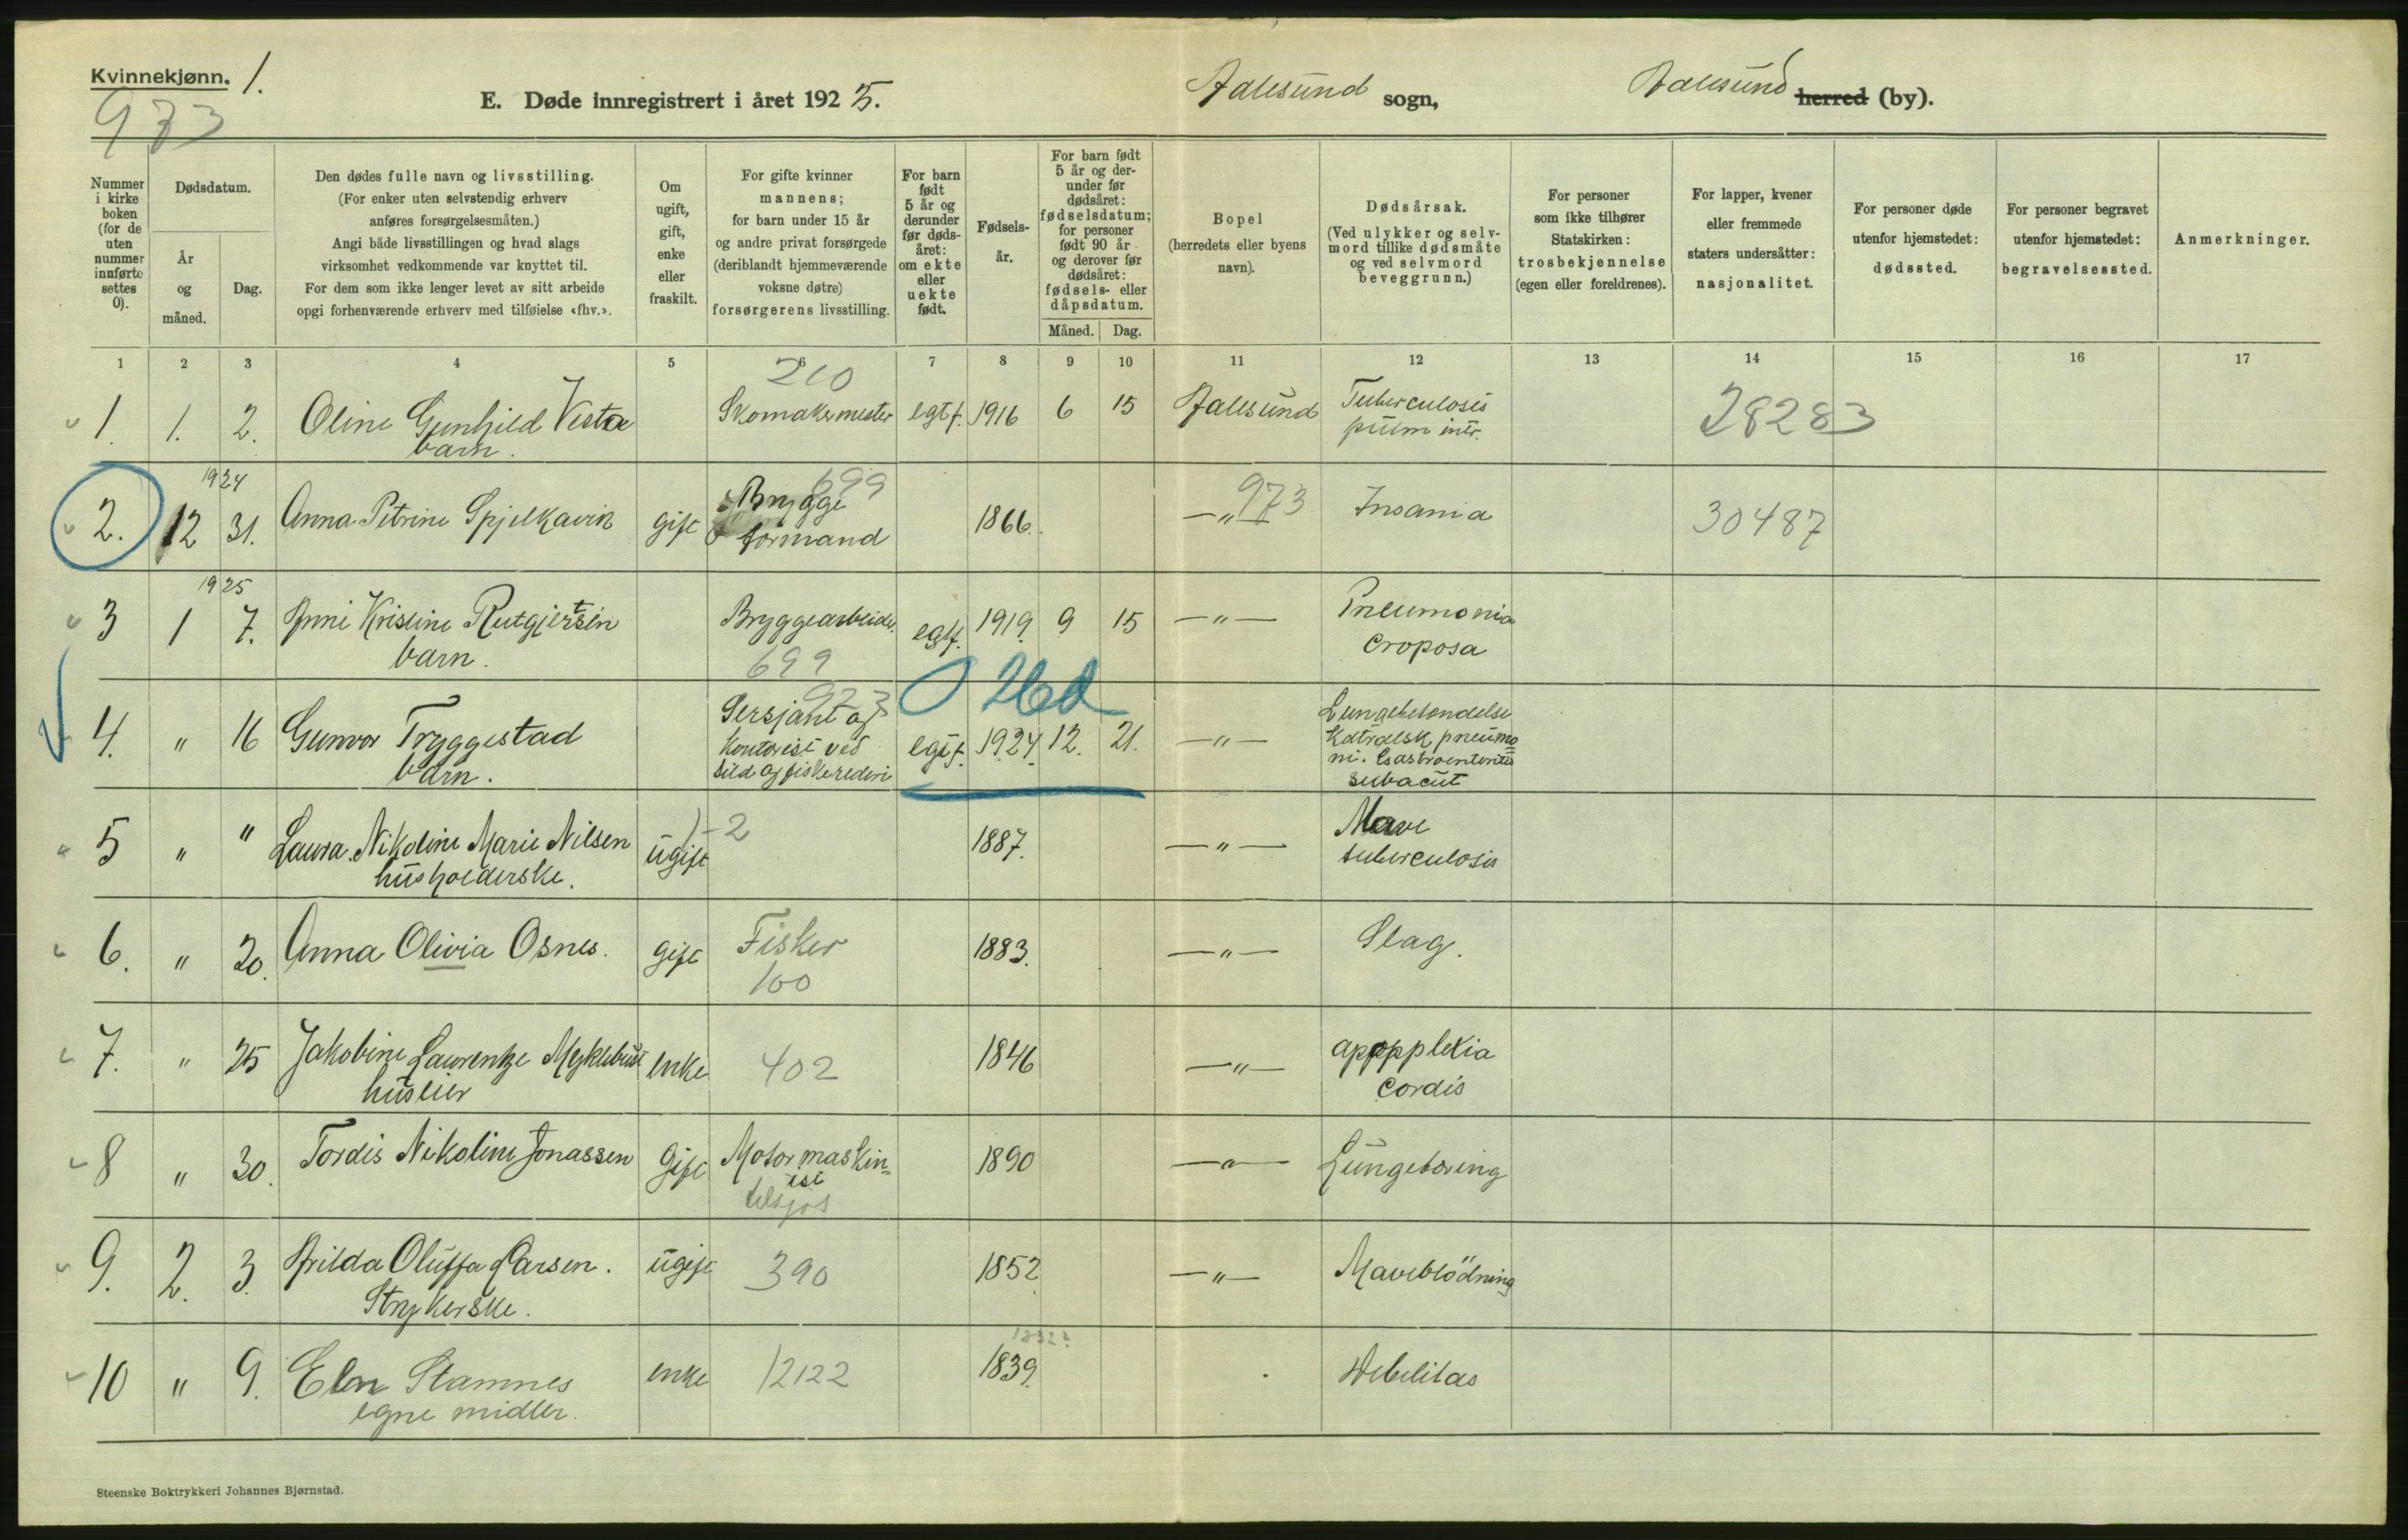 Kvinnekjønn. 1.
973
E. Døde innregistrert i året 1925.
Aalesund sogn,
Aalesund herred (by).
Nummer i kirke boken (for de uten nummer innførte settes 0).
Dødsdatum.
År og måned.
Dag.
Den dødes fulle navn og livsstilling.
(For enker uten selvstendig erhverv
anføres forsørgelsesmåten.)
Angi både livsstillingen og hvad slags
virksomhet vedkommende var knyttet til.
For dem som ikke lenger levet av sitt arbeide
opgi forhenværende erhverv med tilføielse «fhv.».
Om ugift, gift, enke eller fraskilt.
For gifte kvinner
mannens;
for barn under 15 år
og andre privat forsørgede
(deriblandt hjemmeværende
voksne døtre)
forsørgerens livsstilling.
For barn født 5 år og derunder før døds-året: om ekte eller uekte født.
Fødsels-år.
For barn født 5 år og der-under før dødsåret: fødselsdatum; for personer født 90 år og derover før dødsåret: fødsels- eller dåpsdatum.
Måned. Dag.
Bopel
(herredets eller byens
navn).
Dødsårsak.
(Ved ulykker og selv-
mord tillike dødsmåte
og ved selvmord
beveggrunn.)
For personer
som ikke tilhører
Statskirken:
trosbekjennelse
(egen eller foreldrenes).
For lapper, kvener
eller fremmede
staters undersåtter:
nasjonalitet.
For personer døde
utenfor hjemstedet:
dødssted.
For personer begravet
utenfor hjemstedet:
begravelsessted.
Anmerkninger.
1 2 3 4 5 6 7 8 9 10 11 12 13 14 15 16 17
210
1. 1. 2. Oline Gunhild Vestre Skomakermester egt f. 1916 6 15 Aalesund Tuberculosis 28283
barn. pulm
1924 699
2. 12 31. Anna Petrine Spjelkavik gift Brygge 1866. —"— 973 Insania 30487
formand
1925
3 1 7. Anni Kristine Rutgjertsen Bryggearbeider. egt f. 1919 9 15 —"— Pneumonia
barn. 699 croposa
973 0 26d
4. " 16 Gunvor Tryggestad Sersjant og egt f. 1924 12. 21. —"— Lungebetendelse
barn. kontorist ved Katralsk pneumo
sild og fiskerederi ni. Gastroenteritis
subacut
5 " " Laura Nikoline Marie Nilsen ugift 1-2 1887. —"— Mave
husholderske. tuberculosis
6. " 20. Anna Olivia Osnes. gift Fisker 1883. —"— Slag.
100
7. " 25 Jakobine Laurentze Myklebust enke 402 1846 —"— apopplexia
huslier cordis
8 " 30. Tordis Nikoline Jonassen Gift Motormaskin= 1890 —"— Lungetæring
ist
tilsjøs
9. 2. 3. Hilda Oluffa Larsen. ugift 390 1852 —"— Maveblödning
Strykerske.
10 " 9. Elen Stamnes enke 12122 1839. Debilitas
egne midler.
Steenske Boktrykkeri Johannes Bjørnstad.